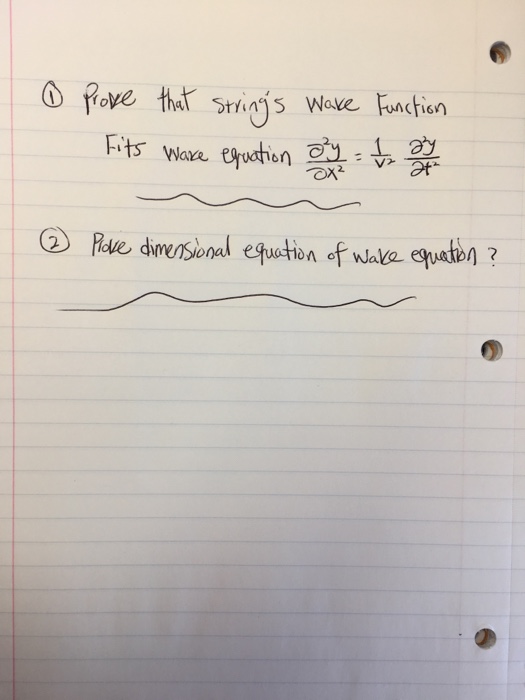 ① Prove that string's wave Function
Fits wave equation ∂²y/∂x² = 1/v² ∂²y/∂t²
② Prove dimensional equation of wave equation ?